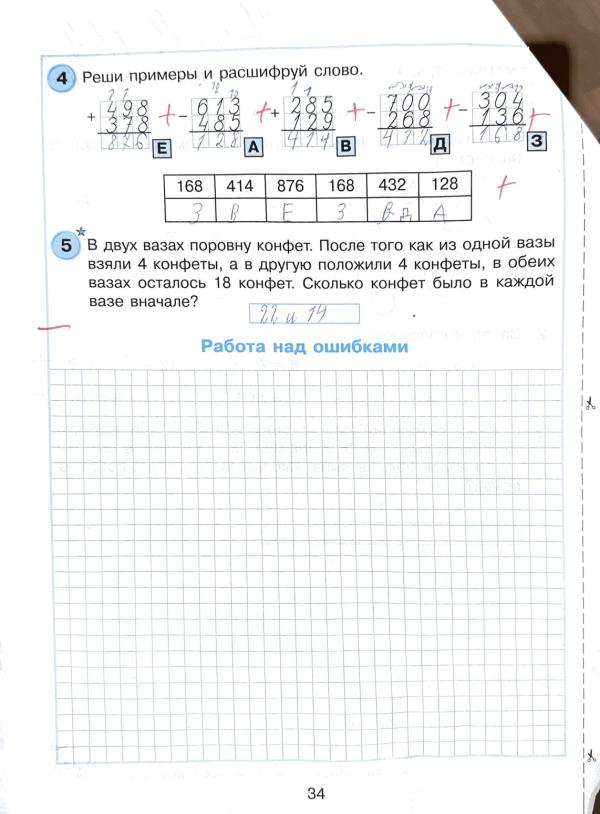 4 Реши примеры и расшифруй слово.
1 1 10 10 1 1
+ 498 + − 613 + + 285 + − 700 + − 304 +
378 485 129 268 136
876 Е 128 А 414 В 432 Д 168 З
168 414 876 168 432 128 +
З В Е З Д А
5 В двух вазах поровну конфет. После того как из одной вазы
взяли 4 конфеты, а в другую положили 4 конфеты, в обеих
вазах осталось 18 конфет. Сколько конфет было в каждой
вазе вначале?
22 и 14
Работа над ошибками
34